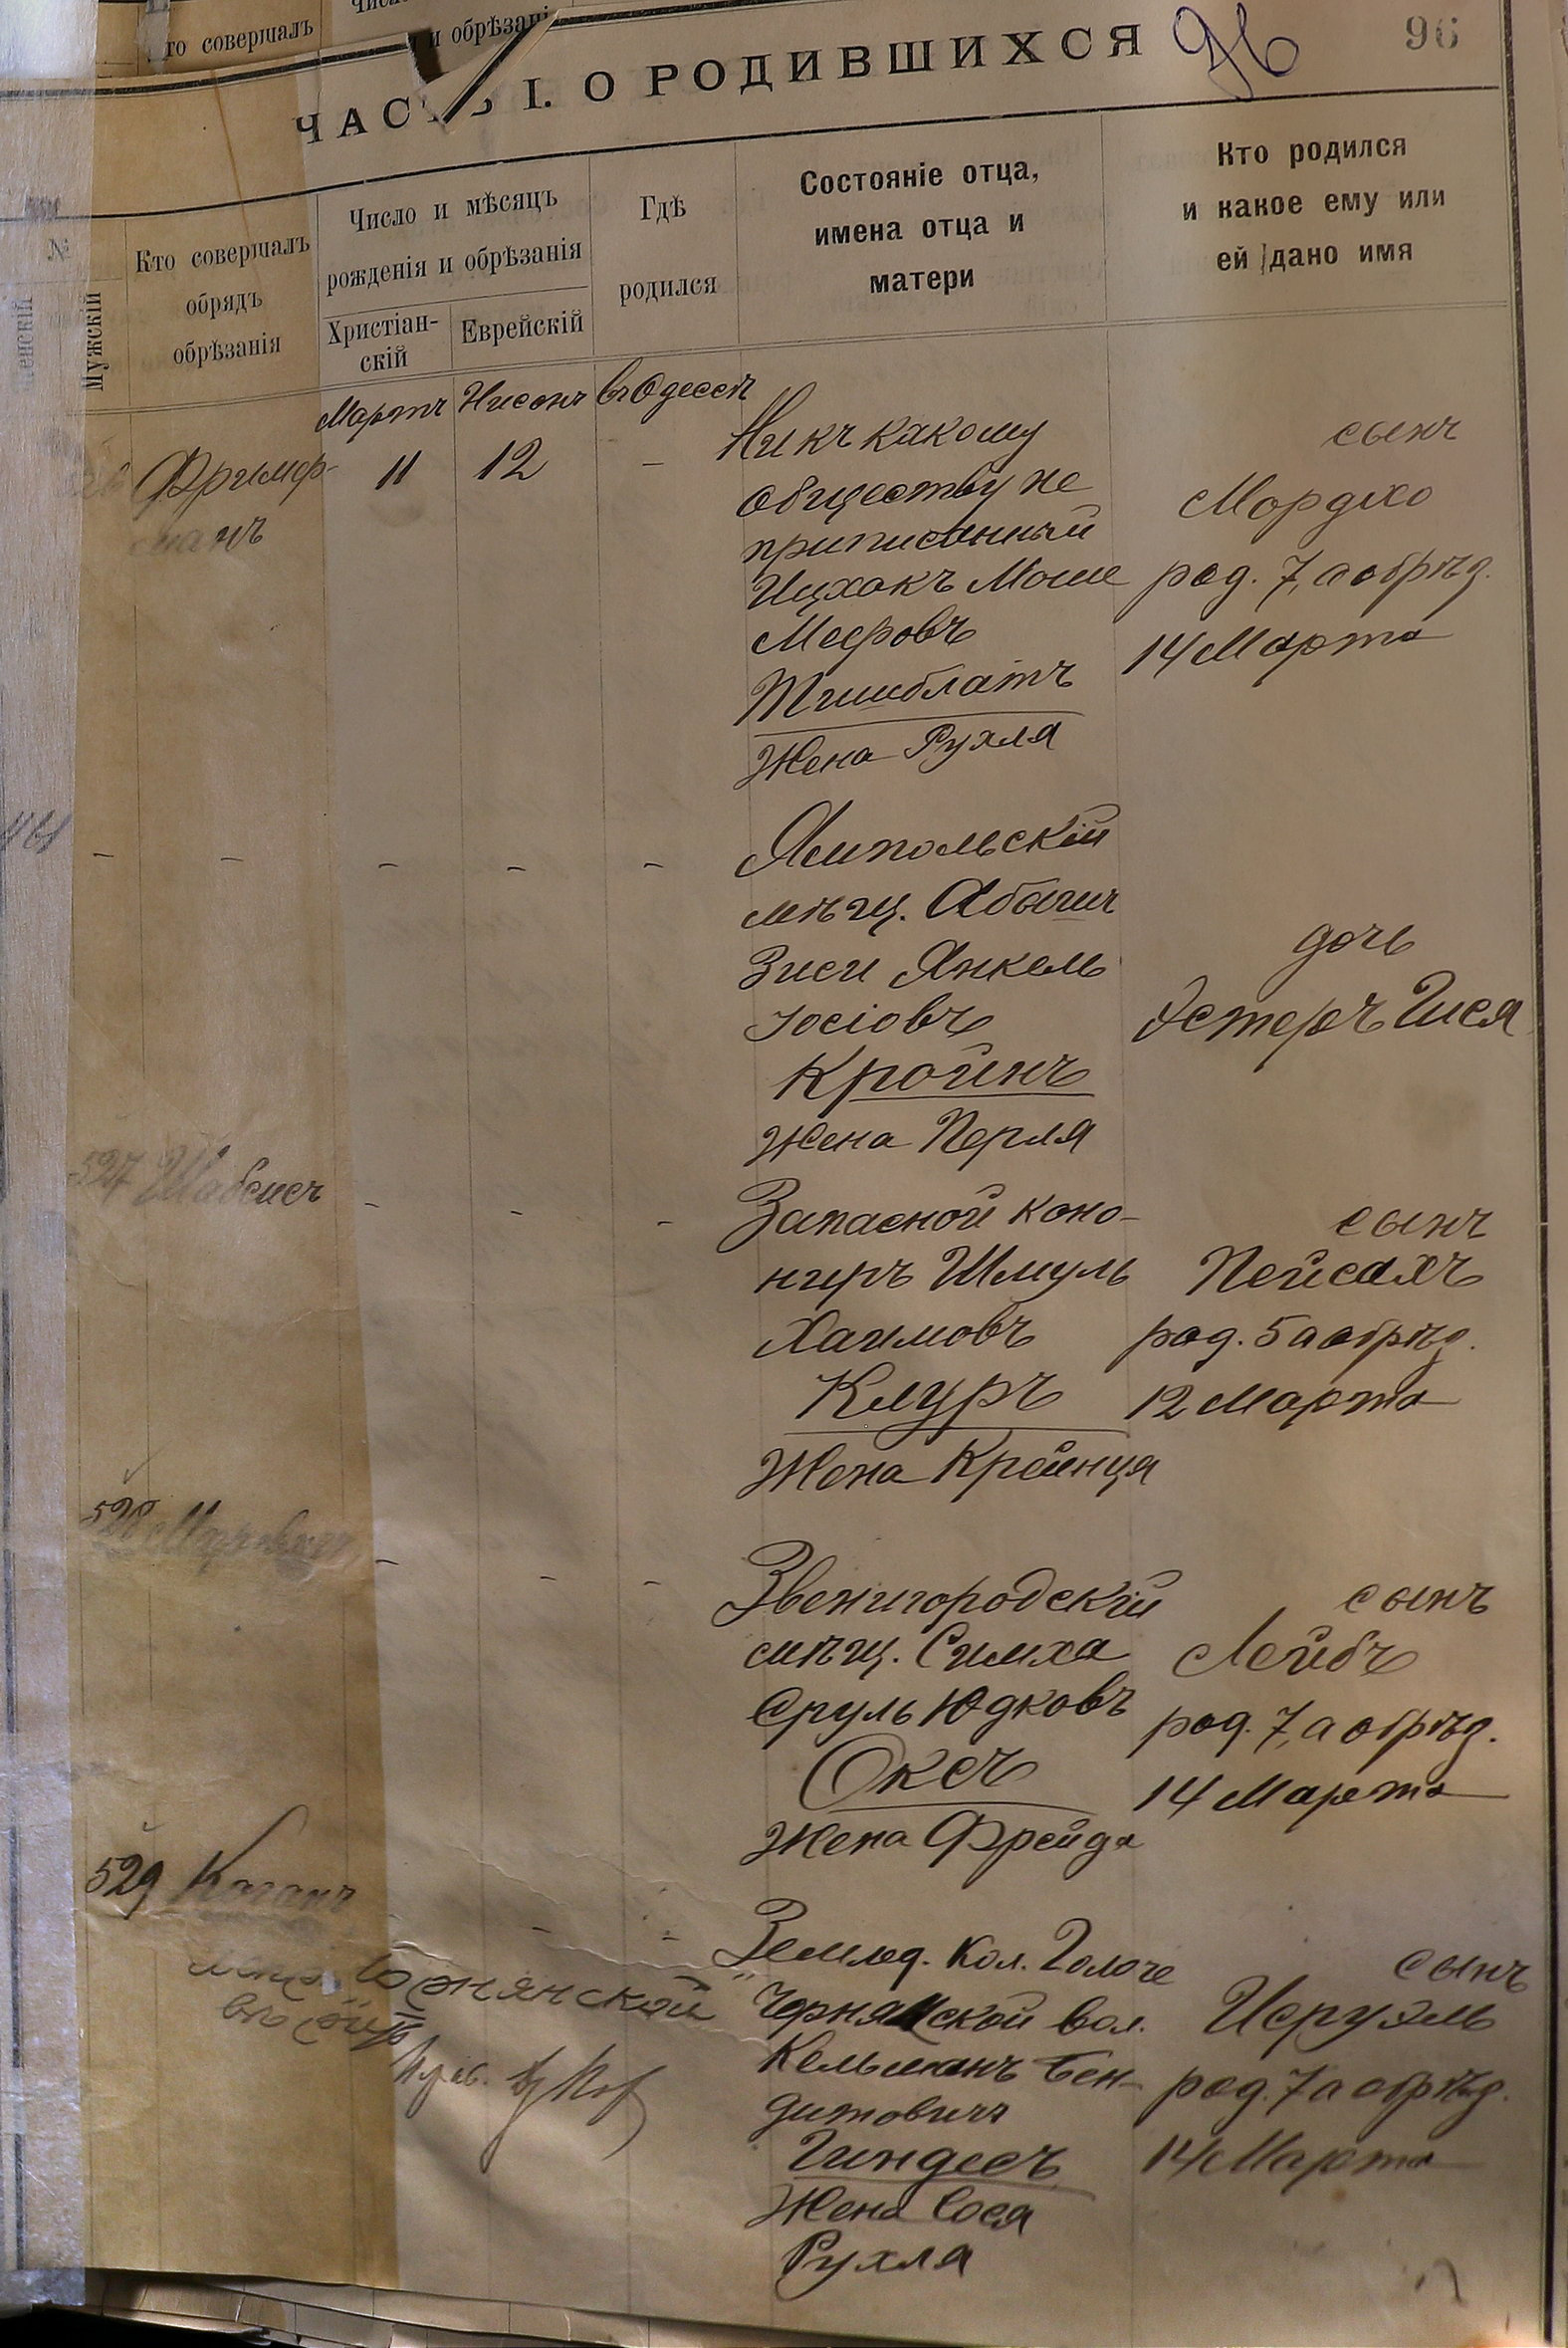 го совершалъ
и обрѣзані
ЧАСТЬ I. О РОДИВШИХСЯ 96 96
№
Мужскій
Кто совершалъ
обрядъ
обрѣзанія
Число и мѣсяцъ
рожденія и обрѣзанія
Христіан-
скій
Еврейскій
Гдѣ
родился
Состояніе отца,
имена отца и
матери
Кто родился
и какое ему или
ей дано имя
Мартъ Нисонъ въ Одессѣ
Фримр-
манъ
11 12 –
Ни къ какому
обществу не
приписанный
Ицхокъ Моше
Мееровъ
Тишблатъ
Жена Рухля
сынъ
Мордхо
род. 7, а обрѣз.
14 Марта
461 – – – – –
Ямпольскій
мѣщ.
Зиси Янкель
Іосіовъ
Кройнъ
Жена Перля
дочь
Эстеръ Гися
527 Шабсисъ – – –
Запасной кано-
ниръ Шмуль
Хаимовъ
Клуръ
Жена Крейнця
сынъ
Пейсахъ
род. 5 а обрѣз.
12 Марта
528
– – –
Звенигородскій
мѣщ. Симха
Сруль Юдковъ
Оксъ
Жена Фрейда
сынъ
Лейбъ
род. 7, а обрѣз.
14 Марта
529 Каганъ
– –
Землед. Кол.
Чернянской вол.
Кельманъ Бен-
дитовичъ
Гиндесъ
Жена Сося
Рухля
сынъ
Исруэль
род. 7 а обрѣз.
14 Марта